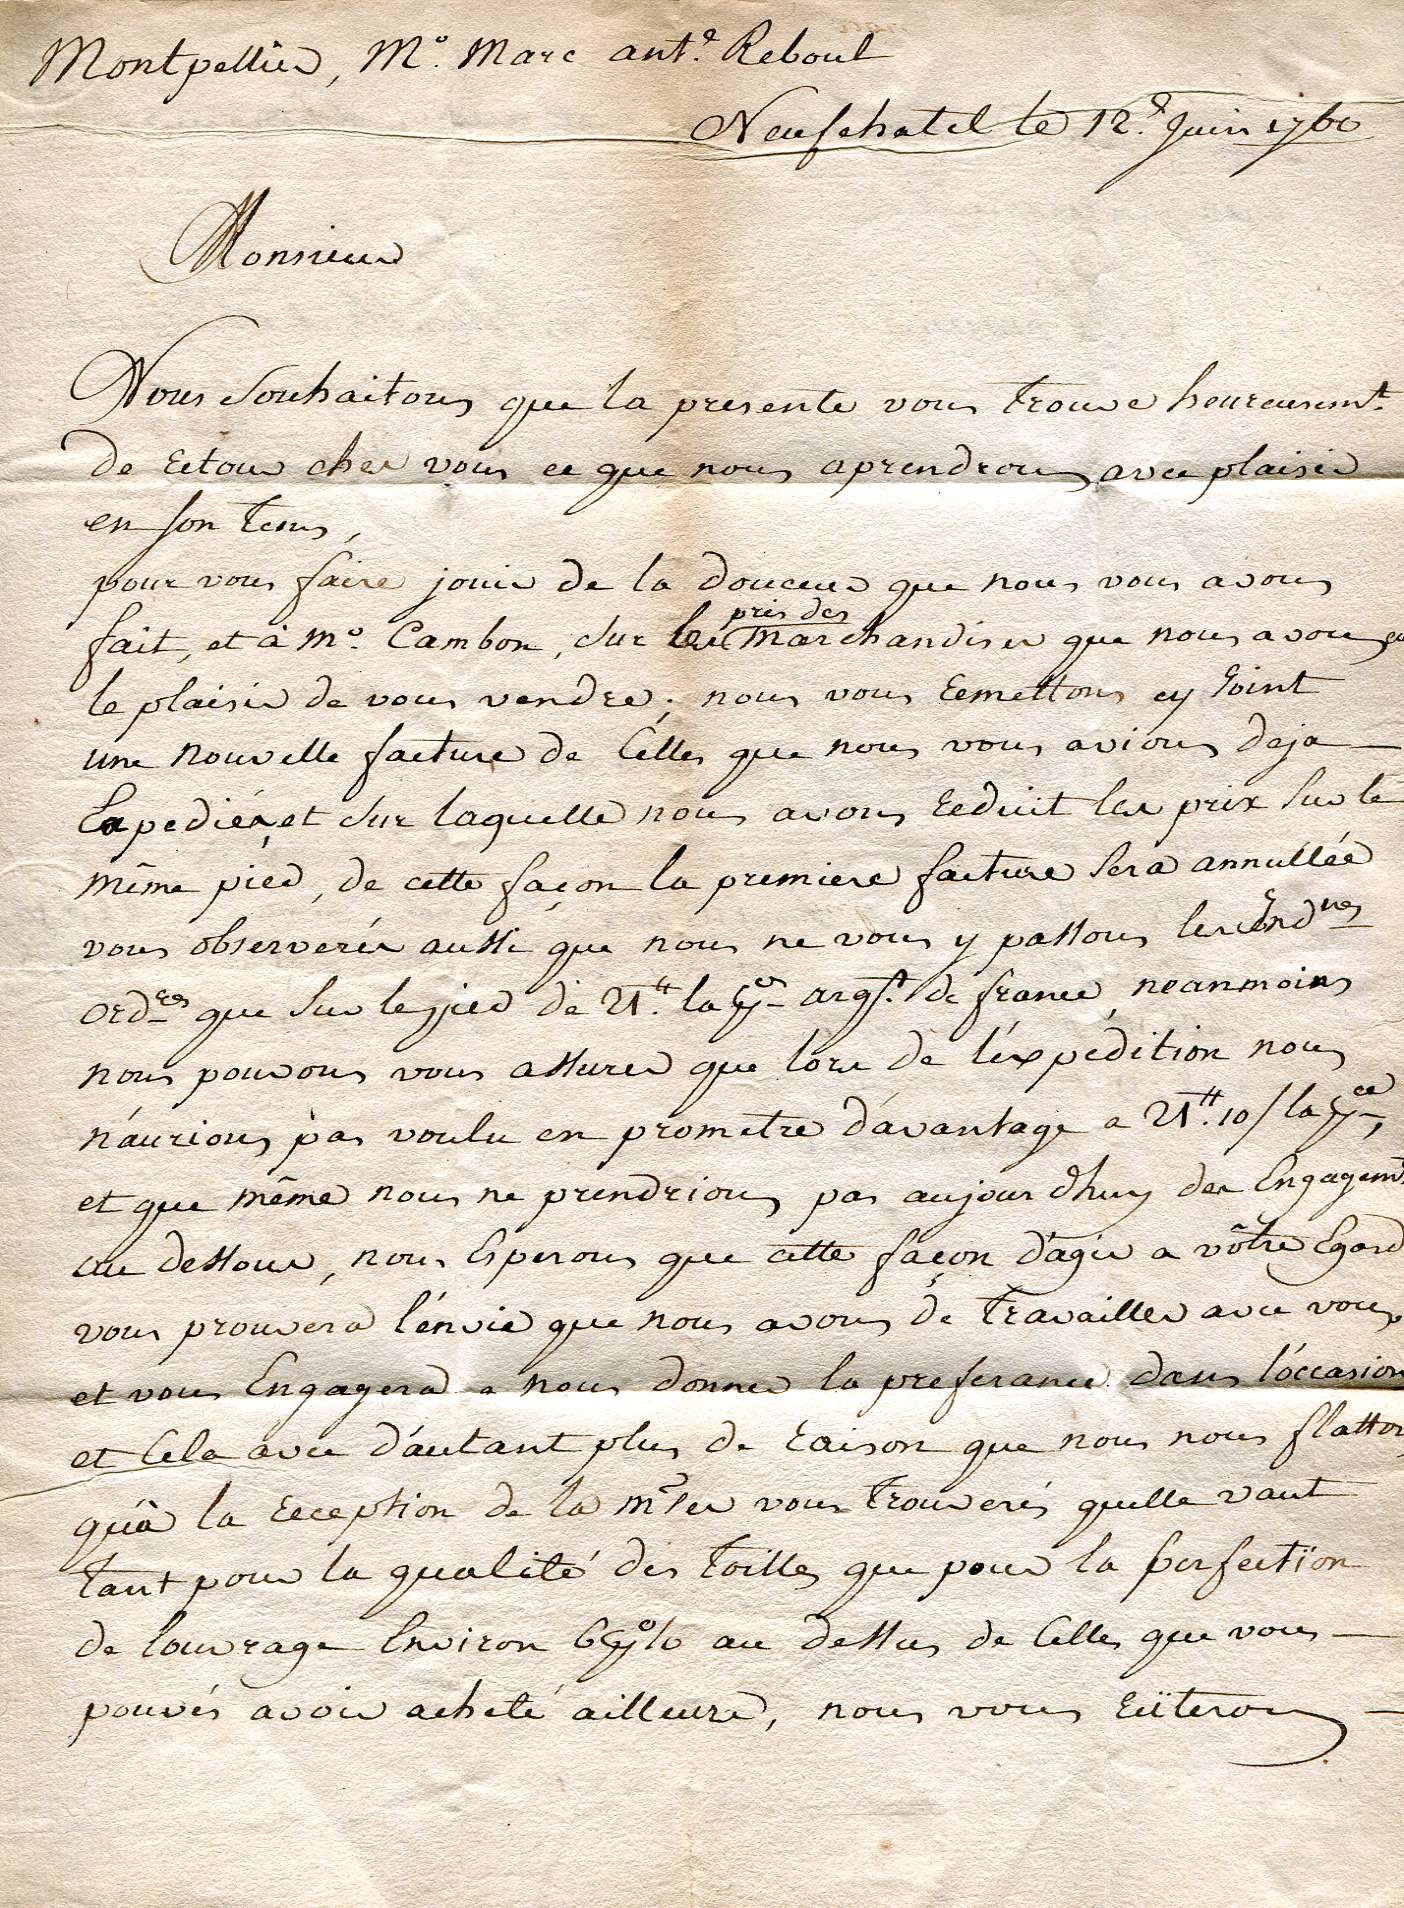 Montpellier, Mr. Marc ant.e Reboul
Neufchatel le 12.e Juin 1760
Monsieur
Nous Souhaitons que la presente vous trouve heureusemt.
de retour chez vous ce que nous aprendrons avec plaisir
en son tems,
pour vous faire jouir de la douceur que nous vous avons
pris des
fait, et à Mr. Cambon, sur les Marchandises que nous avons eu
le plaisir de vous vendre; nous vous remettons cy joint
une nouvelle facture de Celles que nous vous avions deja
Expediées et sur laquelle nous avons reduit les prix sur le
même pied, de cette façon la premiere facture sera annullée
vous observerés aussi que nous ne vous y passons les
ord.res que sur le pied de 21.tt la argt. de france, neanmoins
nous pouvons vous assurer que lors de l'éxpédition nous
n'áurions pas voulu en prometre d'ávantage a 21.tt 10/ la
et que même nous ne prendrions pas aujourdhuy des Engagemts.
au dessous, nous Esperons que cette façon d'agir a vôtre Egard
vous prouvera l'énvie que nous avons de travailler avec vous,
et vous Engagera a nous donner la preferance dans l'óccasion
et Cela avec d'áutant plus de raison que nous nous flattons
qu'à la reception de la mdse vous trouverés quelle vaut
tant pour la qualité des toilles que pour la perfection
de louvrage Environ 6 % au dessus de Celles que vous
pouvés avoir acheté ailleurs, nous vous reïterons